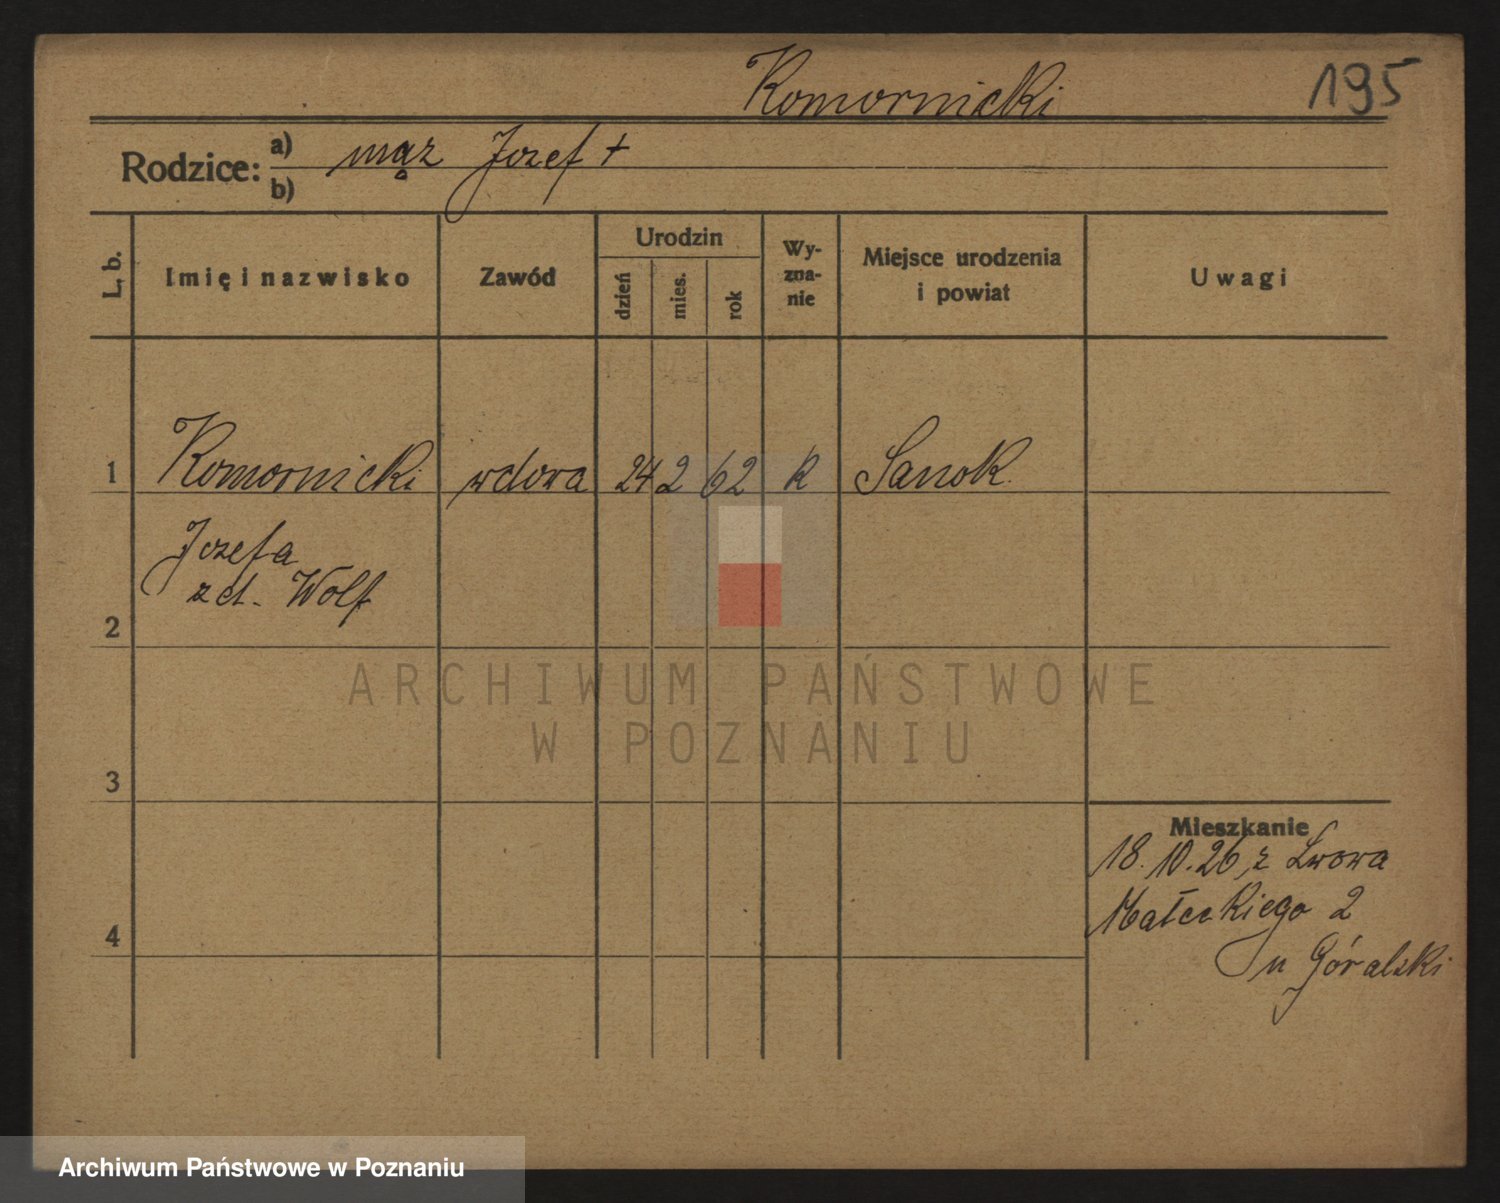 Komornicki 195
Rodzice: a) mąż Jozef +
b)
L. b.
Imię i nazwisko
Zawód
Urodzin
dzień
mies.
rok
Wy-
zna-
nie
Miejsce urodzenia
i powiat
Uwagi
1 Komornicki wdowa 24 2 62 k Sanok
Jozefa
zd. Wolf
2
3
4
Mieszkanie
18.10.26 z Lwowa
Małeckiego 2
u Góralski
ARCHIWUM PAŃSTWOWE
W POZNANIU
Archiwum Państwowe w Poznaniu